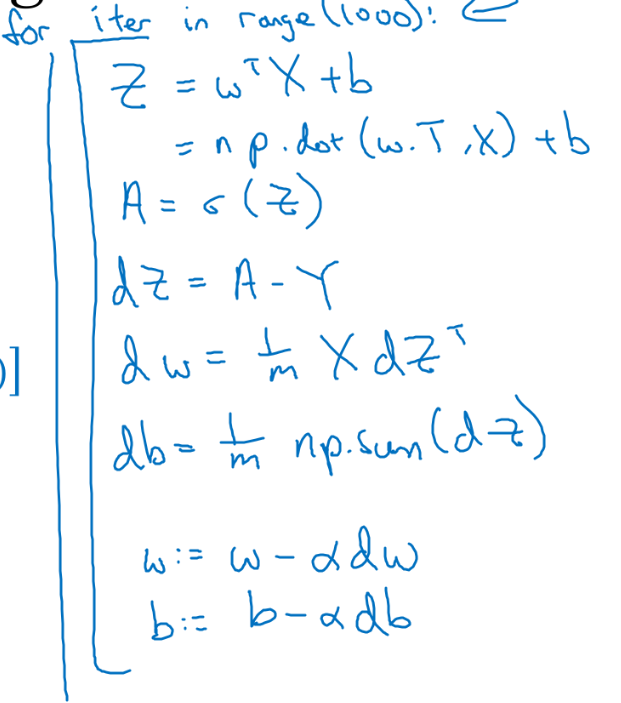 for iter in range(1000): ⇐
Z = wᵀX + b
= np.dot(w.T, X) + b
A = σ(Z)
dZ = A - Y
dw = 1/m X dZᵀ
)]
db = 1/m np.sum(dZ)
w := w - αdw
b := b - αdb